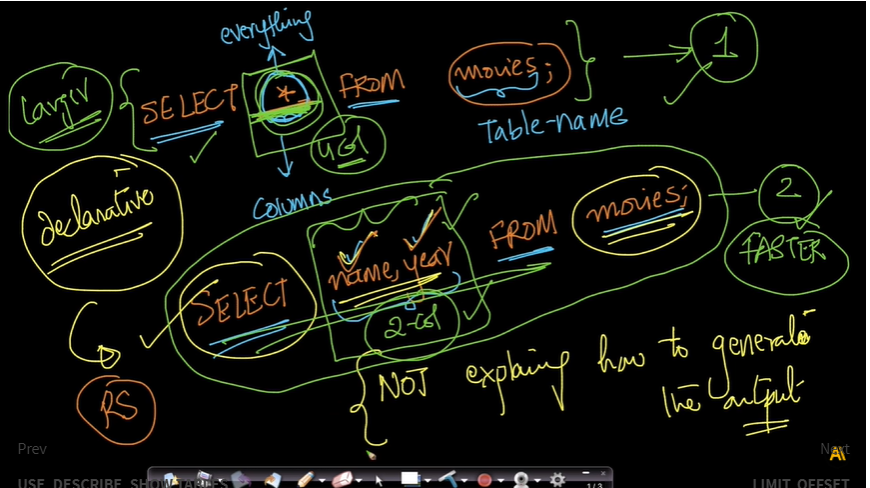 everything
Larger { SELECT * FROM movies; } → 1
4 Col
Table-name
columns
declarative
SELECT name, year FROM movies; 2
FASTER
2-Col
RS
NOT explaing how to generate
the output
Prev
Next
USE, DESCRIBE, SHOW TABLES
LIMIT, OFFSET
1/3